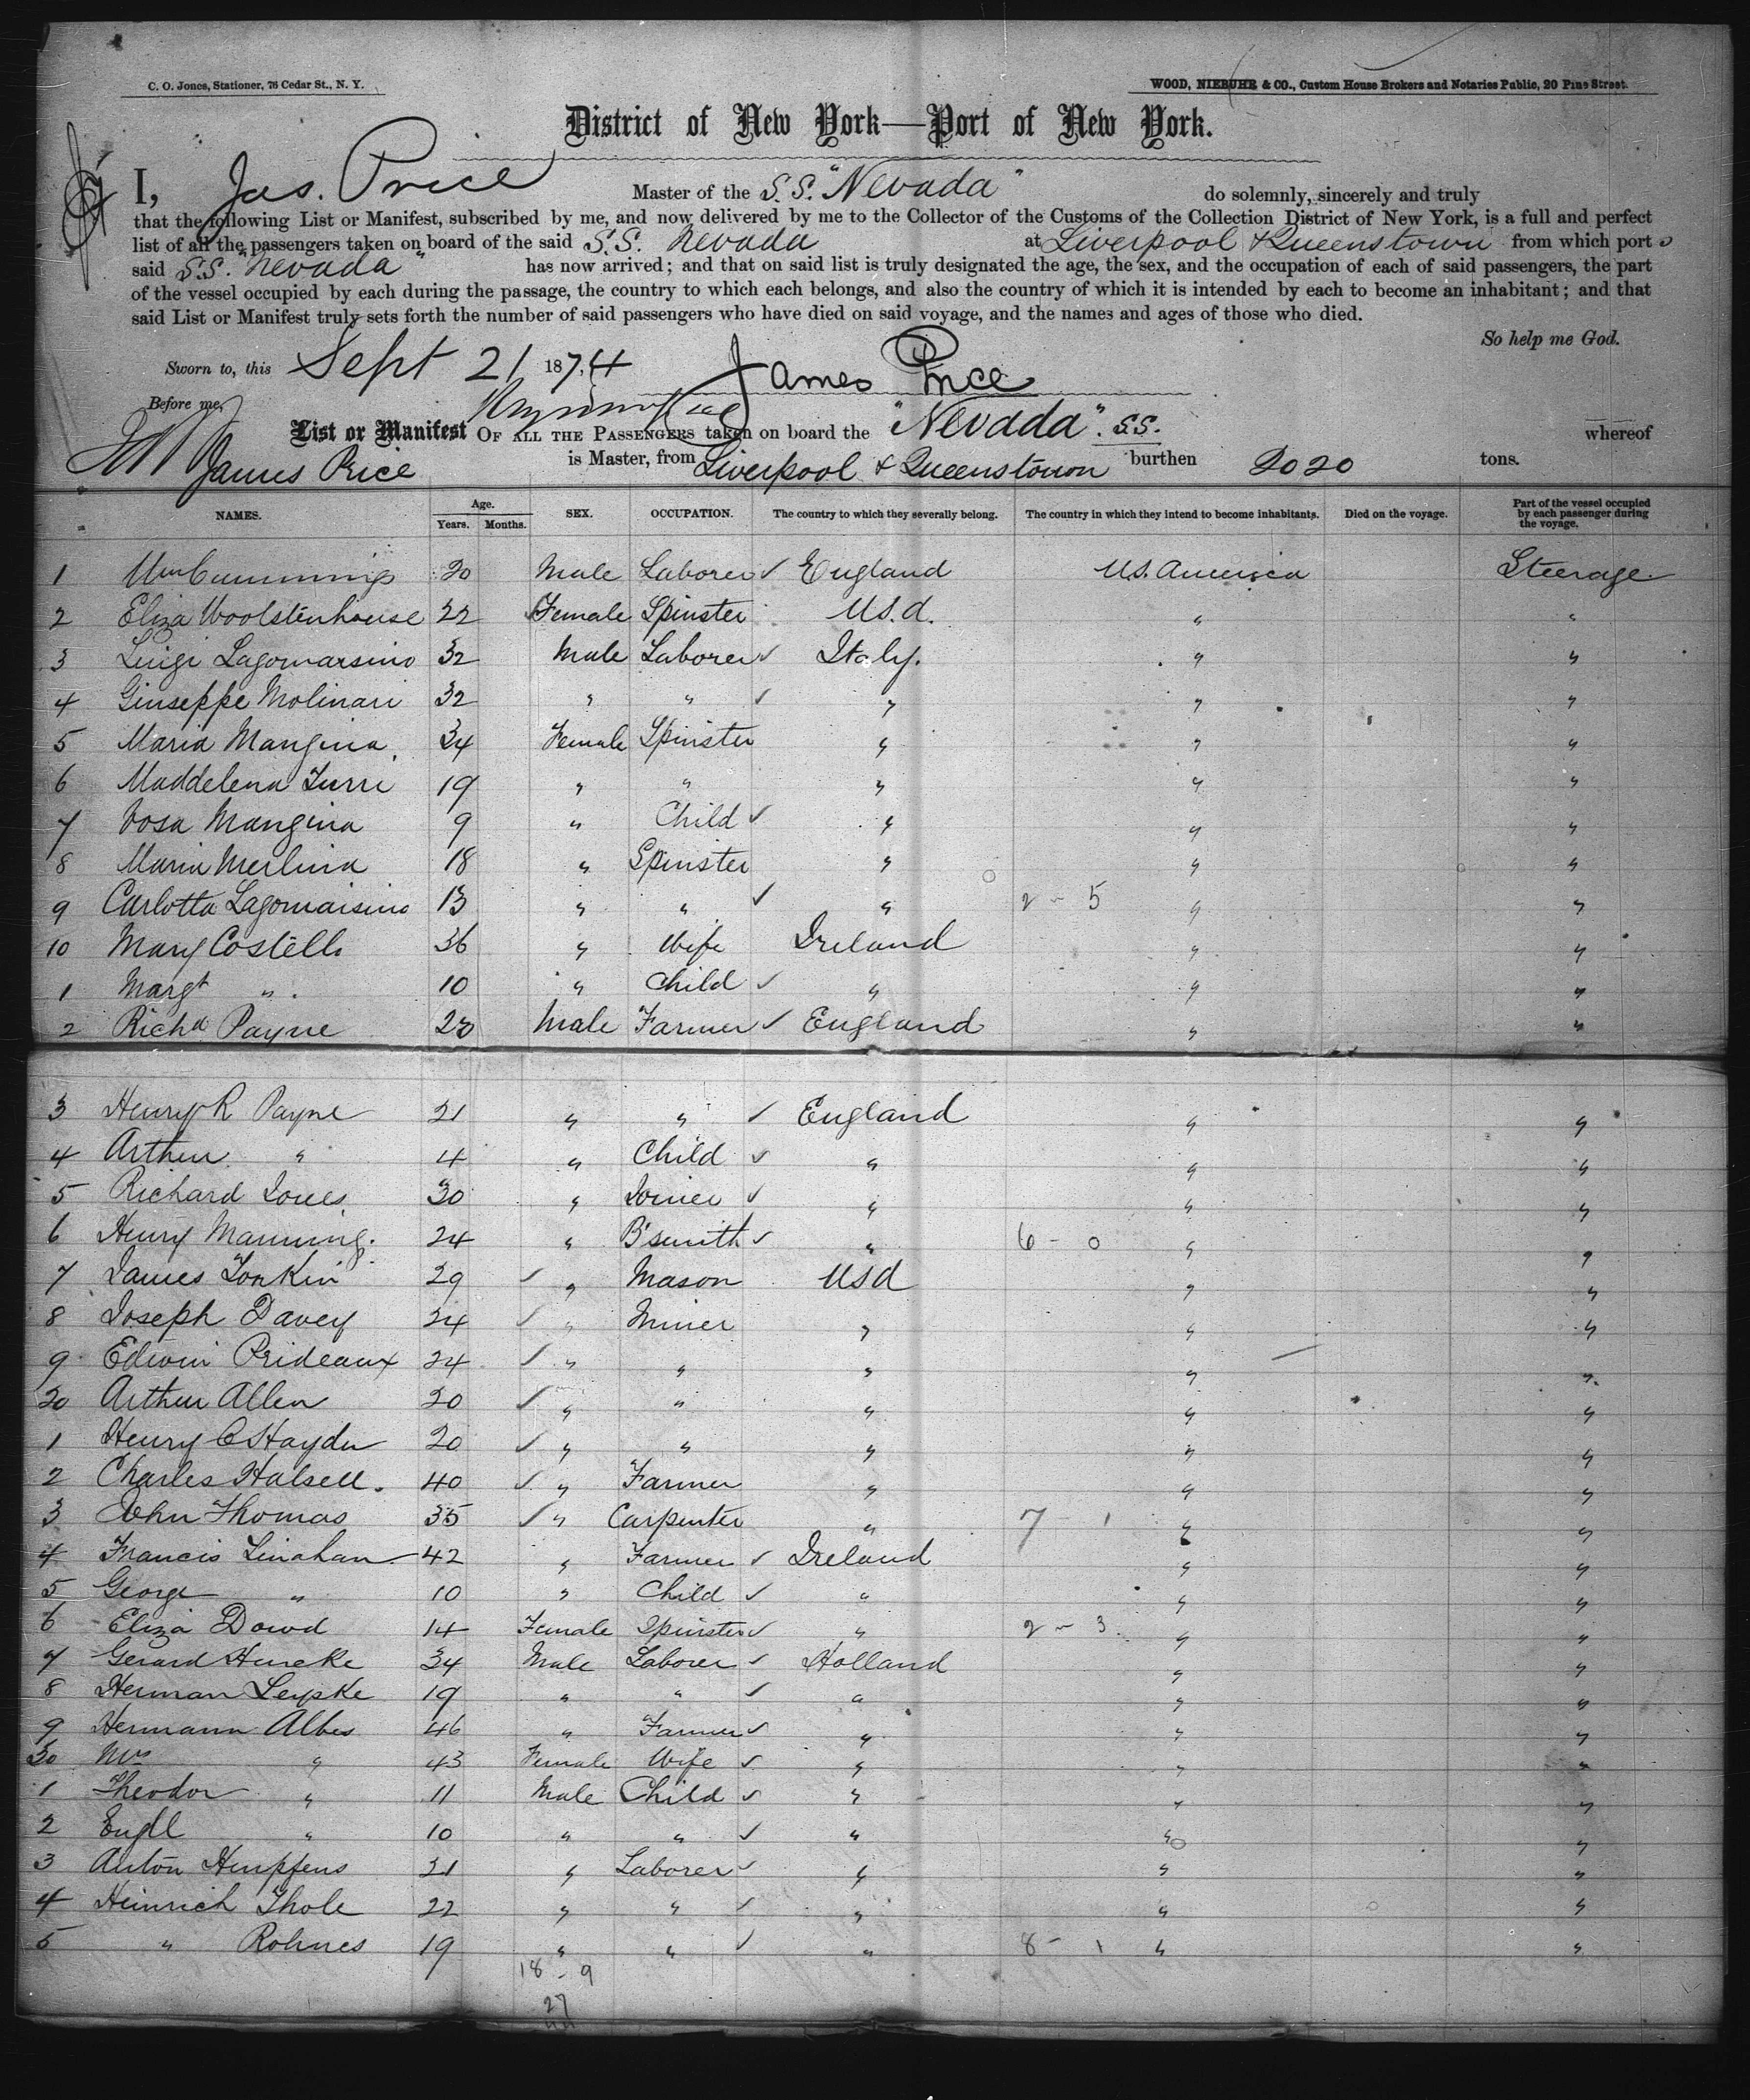 C. O. Jones, Stationer, 76 Cedar St., N. Y.
WOOD, NIEBUHR & CO., Custom House Brokers and Notaries Public, 20 Pine Street.
District of New York—Port of New York.
I, Jas. Price Master of the S.S. "Nevada" do solemnly, sincerely and truly
that the following List or Manifest, subscribed by me, and now delivered by me to the Collector of the Customs of the Collection District of New York, is a full and perfect
list of all the passengers taken on board of the said S.S. Nevada at Liverpool & Queenstown from which port s
said S.S. "Nevada" has now arrived; and that on said list is truly designated the age, the sex, and the occupation of each of said passengers, the part
of the vessel occupied by each during the passage, the country to which each belongs, and also the country of which it is intended by each to become an inhabitant; and that
said List or Manifest truly sets forth the number of said passengers who have died on said voyage, and the names and ages of those who died.
So help me God.
Sworn to, this Sept 21 1874 James Price
Before me,
List or Manifest OF ALL THE PASSENGERS taken on board the "Nevada". S.S. whereof
James Price is Master, from Liverpool & Queenstown burthen 2020 tons.
NAMES. Age. Years. Months. SEX. OCCUPATION. The country to which they severally belong. The country in which they intend to become inhabitants. Died on the voyage. Part of the vessel occupied by each passenger during the voyage.
1 Wm Cummings 20 Male Laborer ✓ England U.S. America Steerage
2 Eliza Woolstenhouse 22 Female Spinster U.S.A. " "
3 Luigi Lagomarsino 32 Male Laborer ✓ Italy. " "
4 Giuseppe Molinari 32 " " ✓ " " "
5 Maria Mangina 34 Female Spinster " " "
6 Maddelena Turri 19 " " " " "
7 Rosa Mangina 9 " Child ✓ " " "
8 Maria Merlina 18 " Spinster " " "
9 Carlotta Lagomarsino 13 " " ✓ " 2 - 5 " "
10 Mary Costello 36 " Wife Ireland " "
1 Margt " 10 " Child ✓ " " "
2 Richd Payne 23 Male Farmer ✓ England " "
3 Henry R Payne 21 " " ✓ England " "
4 Arthur " 4 " Child ✓ " " "
5 Richard Jones 30 " Joiner ✓ " " "
6 Henry Manning. 24 " B'smith ✓ " 6 - 0 " "
7 James Tonkin 29 ✓ " Mason USA " "
8 Joseph Davey 24 ✓ " Miner " " "
9 Edwin Prideaux 24 ✓ " " " " "
20 Arthur Allen 20 ✓ " " " " "
1 Henry C Hayden 20 ✓ " " " " "
2 Charles Halsell. 40 ✓ " Farmer " " "
3 John Thomas 35 ✓ " Carpenter " 7 1 " "
4 Francis Linahan 42 " Farmer ✓ Ireland " "
5 George " 10 " Child ✓ " " "
6 Eliza Dowd 14 Female Spinster ✓ " 2 - 3 " "
7 Gerard 34 Male Laborer ✓ Holland " "
8 Herman Lepke 19 " " ✓ " " "
9 Hermann Albes 46 " Farmer ✓ " " "
30 Mrs " 43 Female Wife ✓ " " "
1 Theodor " 11 Male Child ✓ " " "
2 " 10 " " ✓ " " "
3 Anton 21 " Laborer ✓ " " "
4 Heinrich Thole 22 " " ✓ " " "
5 " Rohnes 19 " " ✓ " 8 - 1 " "
18 - 9
27